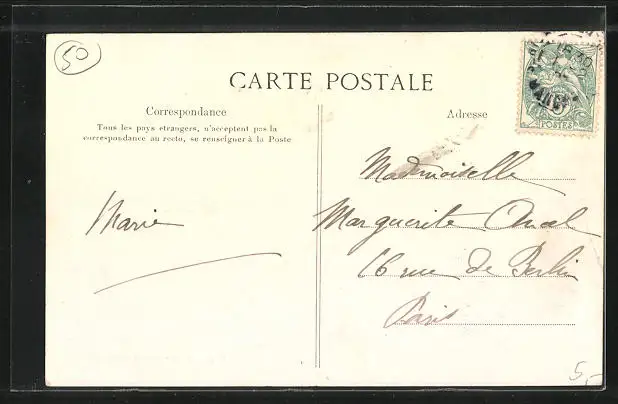 50
CARTE POSTALE
Correspondance
Tous les pays etrangers, n'acceptent pas la
correspondance au recto, se renseigner à la Poste
Adresse
POSTES
Marie
Mademoiselle
Marguerite
16 rue de Berlin
Paris
5,